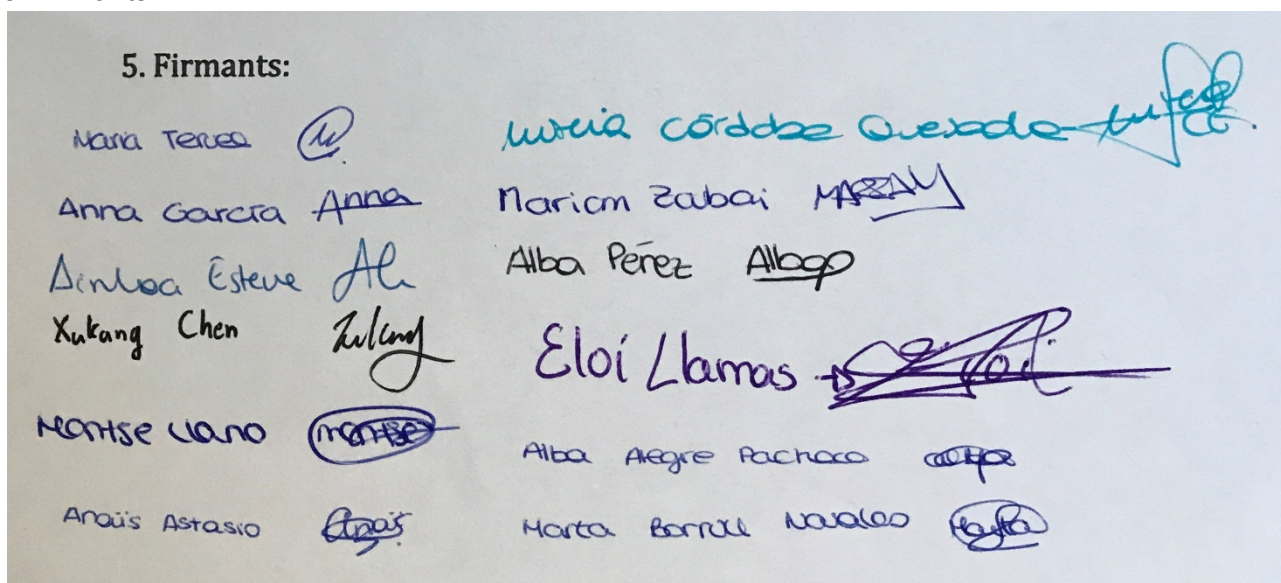 5. Firmants:
Maria Teruel
Anna García Anna
Ainhoa Esteve
Xukang Chen Xukang
Montse Llano montse
Anaïs Astasio Anaïs
Mireia Córdoba Quesada
Mariam Zabai MARIAM
Alba Pérez Albap
Eloi Llamas
Alba Alegre Pacheco
Marta Borrull Navales Marta